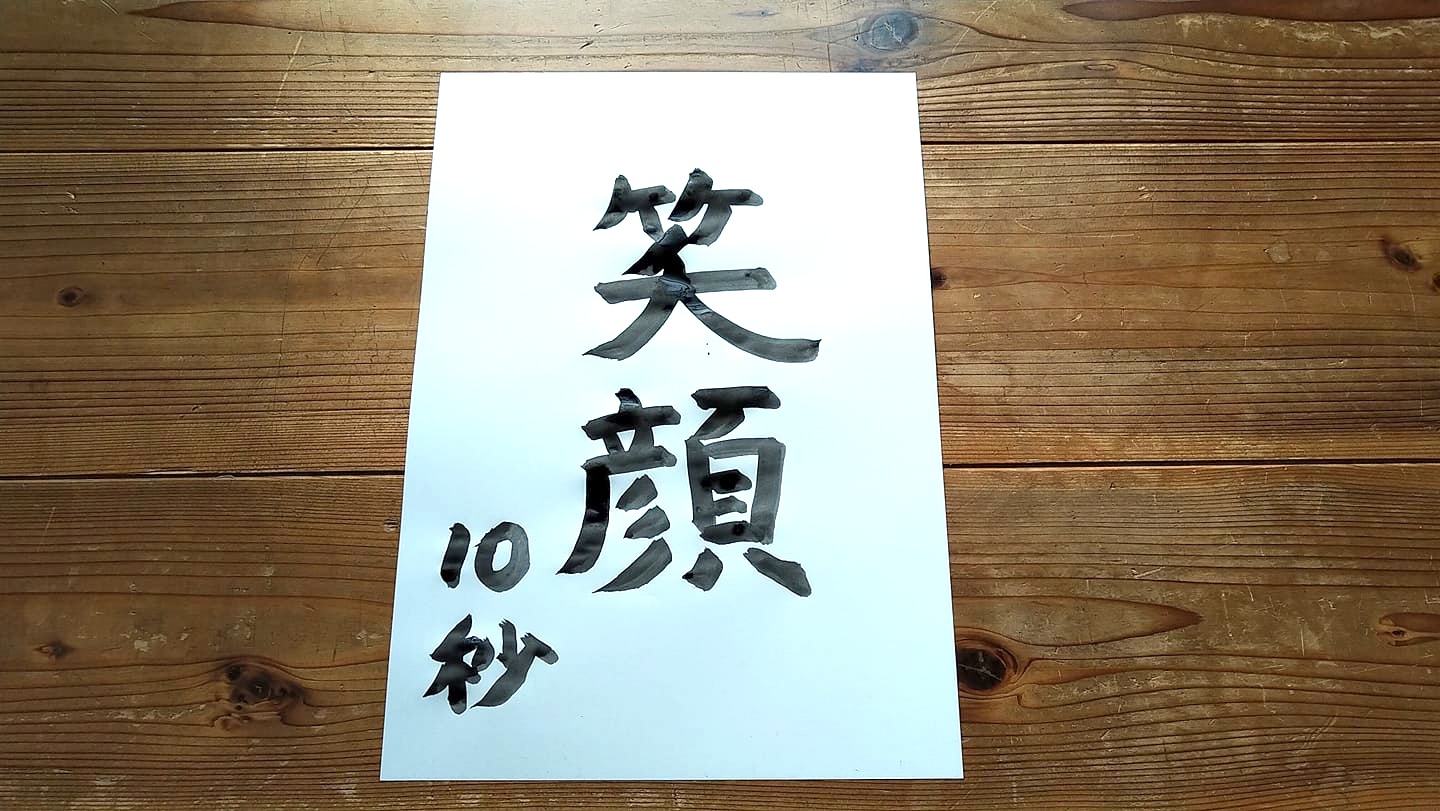 笑顔
10秒